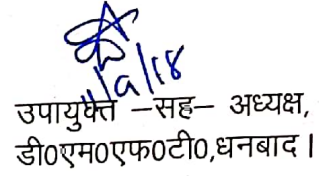 11/9/18
उपायुक्त –सह– अध्यक्ष,
डी0एम0एफ0टी0,धनबाद।